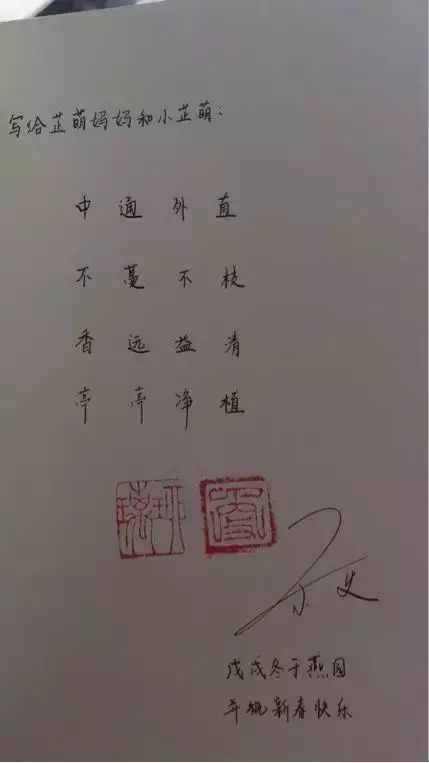 写给芷萌妈妈和小芷萌：
中通外直
不蔓不枝
香远益清
亭亭净植
戊戌冬于燕园
并祝新春快乐